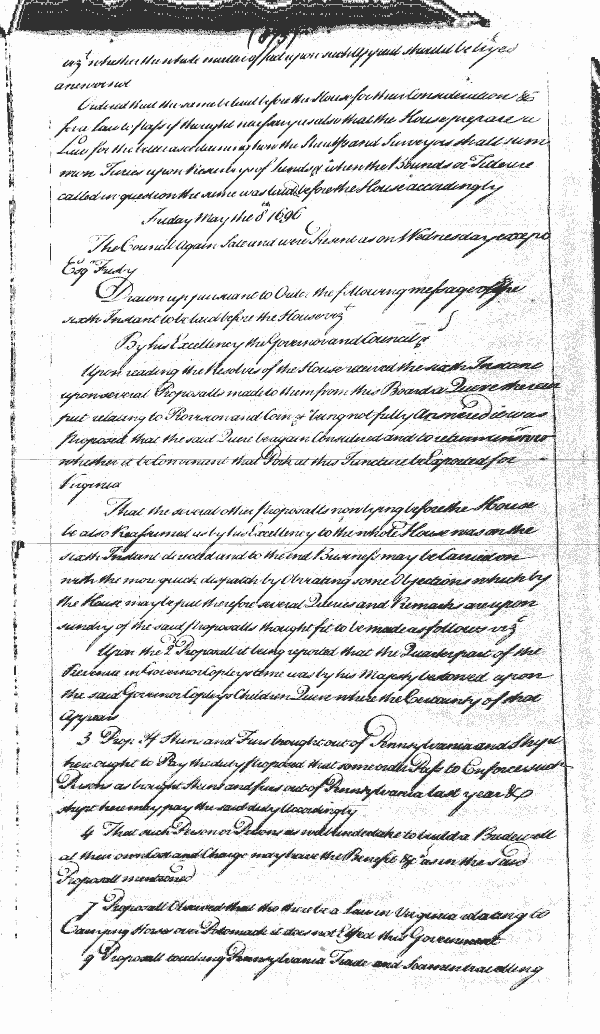 (875)
viz.t whether the whole matter of fact upon such Appeal should be tryed
anew or not
Ordered that the same be laid before the House for their Consideration &c
for a law to pass if thought necessary also that the House prepare a
Law for the better ascertaining how the Sheriffs and Surveyors shall sum
mon Juries upon Resurveys of Lands & when the Bounds are
called in question the same was laid before the House accordingly
Friday May the 8th 1696
The Council again Sate and were Present as on Wednesday except
Esq.r Frisby
Drawn up pursuant to Order the following message of the
sixth Instant to be laid before the House viz.t
By his Excellency the Governor and Council
Upon reading the Resolves of the House received the sixth Instant
upon several Proposals made to them from this Board a Quere therein
put relating to Provision and Corn & being not fully Answered it was
Proposed that the said Quere be again Considered and to return answer
whether it be Convenient that Pork at this Juncture be Exported for
Virginia
That the several other proposalls now lying before the House
be also Reassumed as by his Excellency to the whole House was on the
sixth Instant directed and to the end Business may be Carried on
with the more quick dispatch by Obviating some Objections which by
the House may be put therefore several Queries and Remarks are upon
sundry of the said proposalls thought fit to be made as follows viz.t
Upon the 2 Proposall it being reported that the Quarter part of the
Revenue in Governor Copleys time was by his Majesty bestowed upon
the said Governor Copleys Children Quere where the Certainty of that
Appears
3 Prop: If Skins and Furs brought out of Pennsylvania and Shipt
here ought to Pay the duty Proposed that some order Pass to Enforce such
Persons as brought Skins and furs out of Pennsylvania last year &
shipt here may pay the said duty Accordingly
4 That such Person or Persons as will undertake to build a Bridewell
at their own Cost and Charge may have the Benefit &c.a as in the said
Proposall mentioned
7 Proposall Observed that tho there be a law in Virginia relating to
Carrying Horses over Potomack it does not Effect this Government
9 Proposall touching Pennsylvania Trade and Seamen travelling